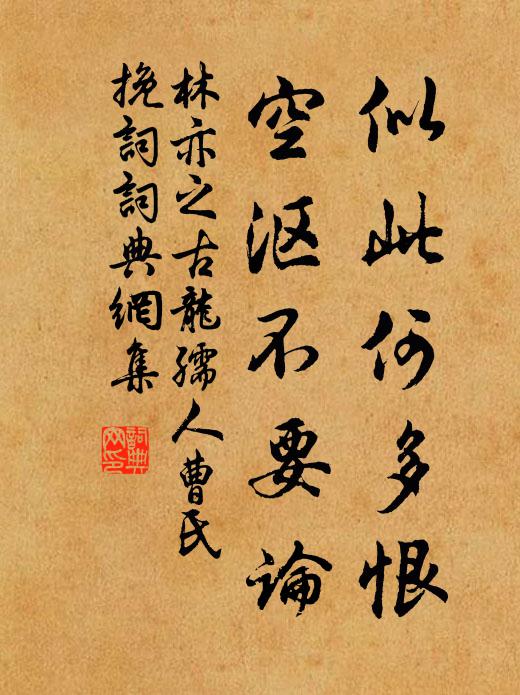 似此何多恨
空沤不要論
林亦之古龍孺人曹氏
挽詞詞典網集
詞典网印